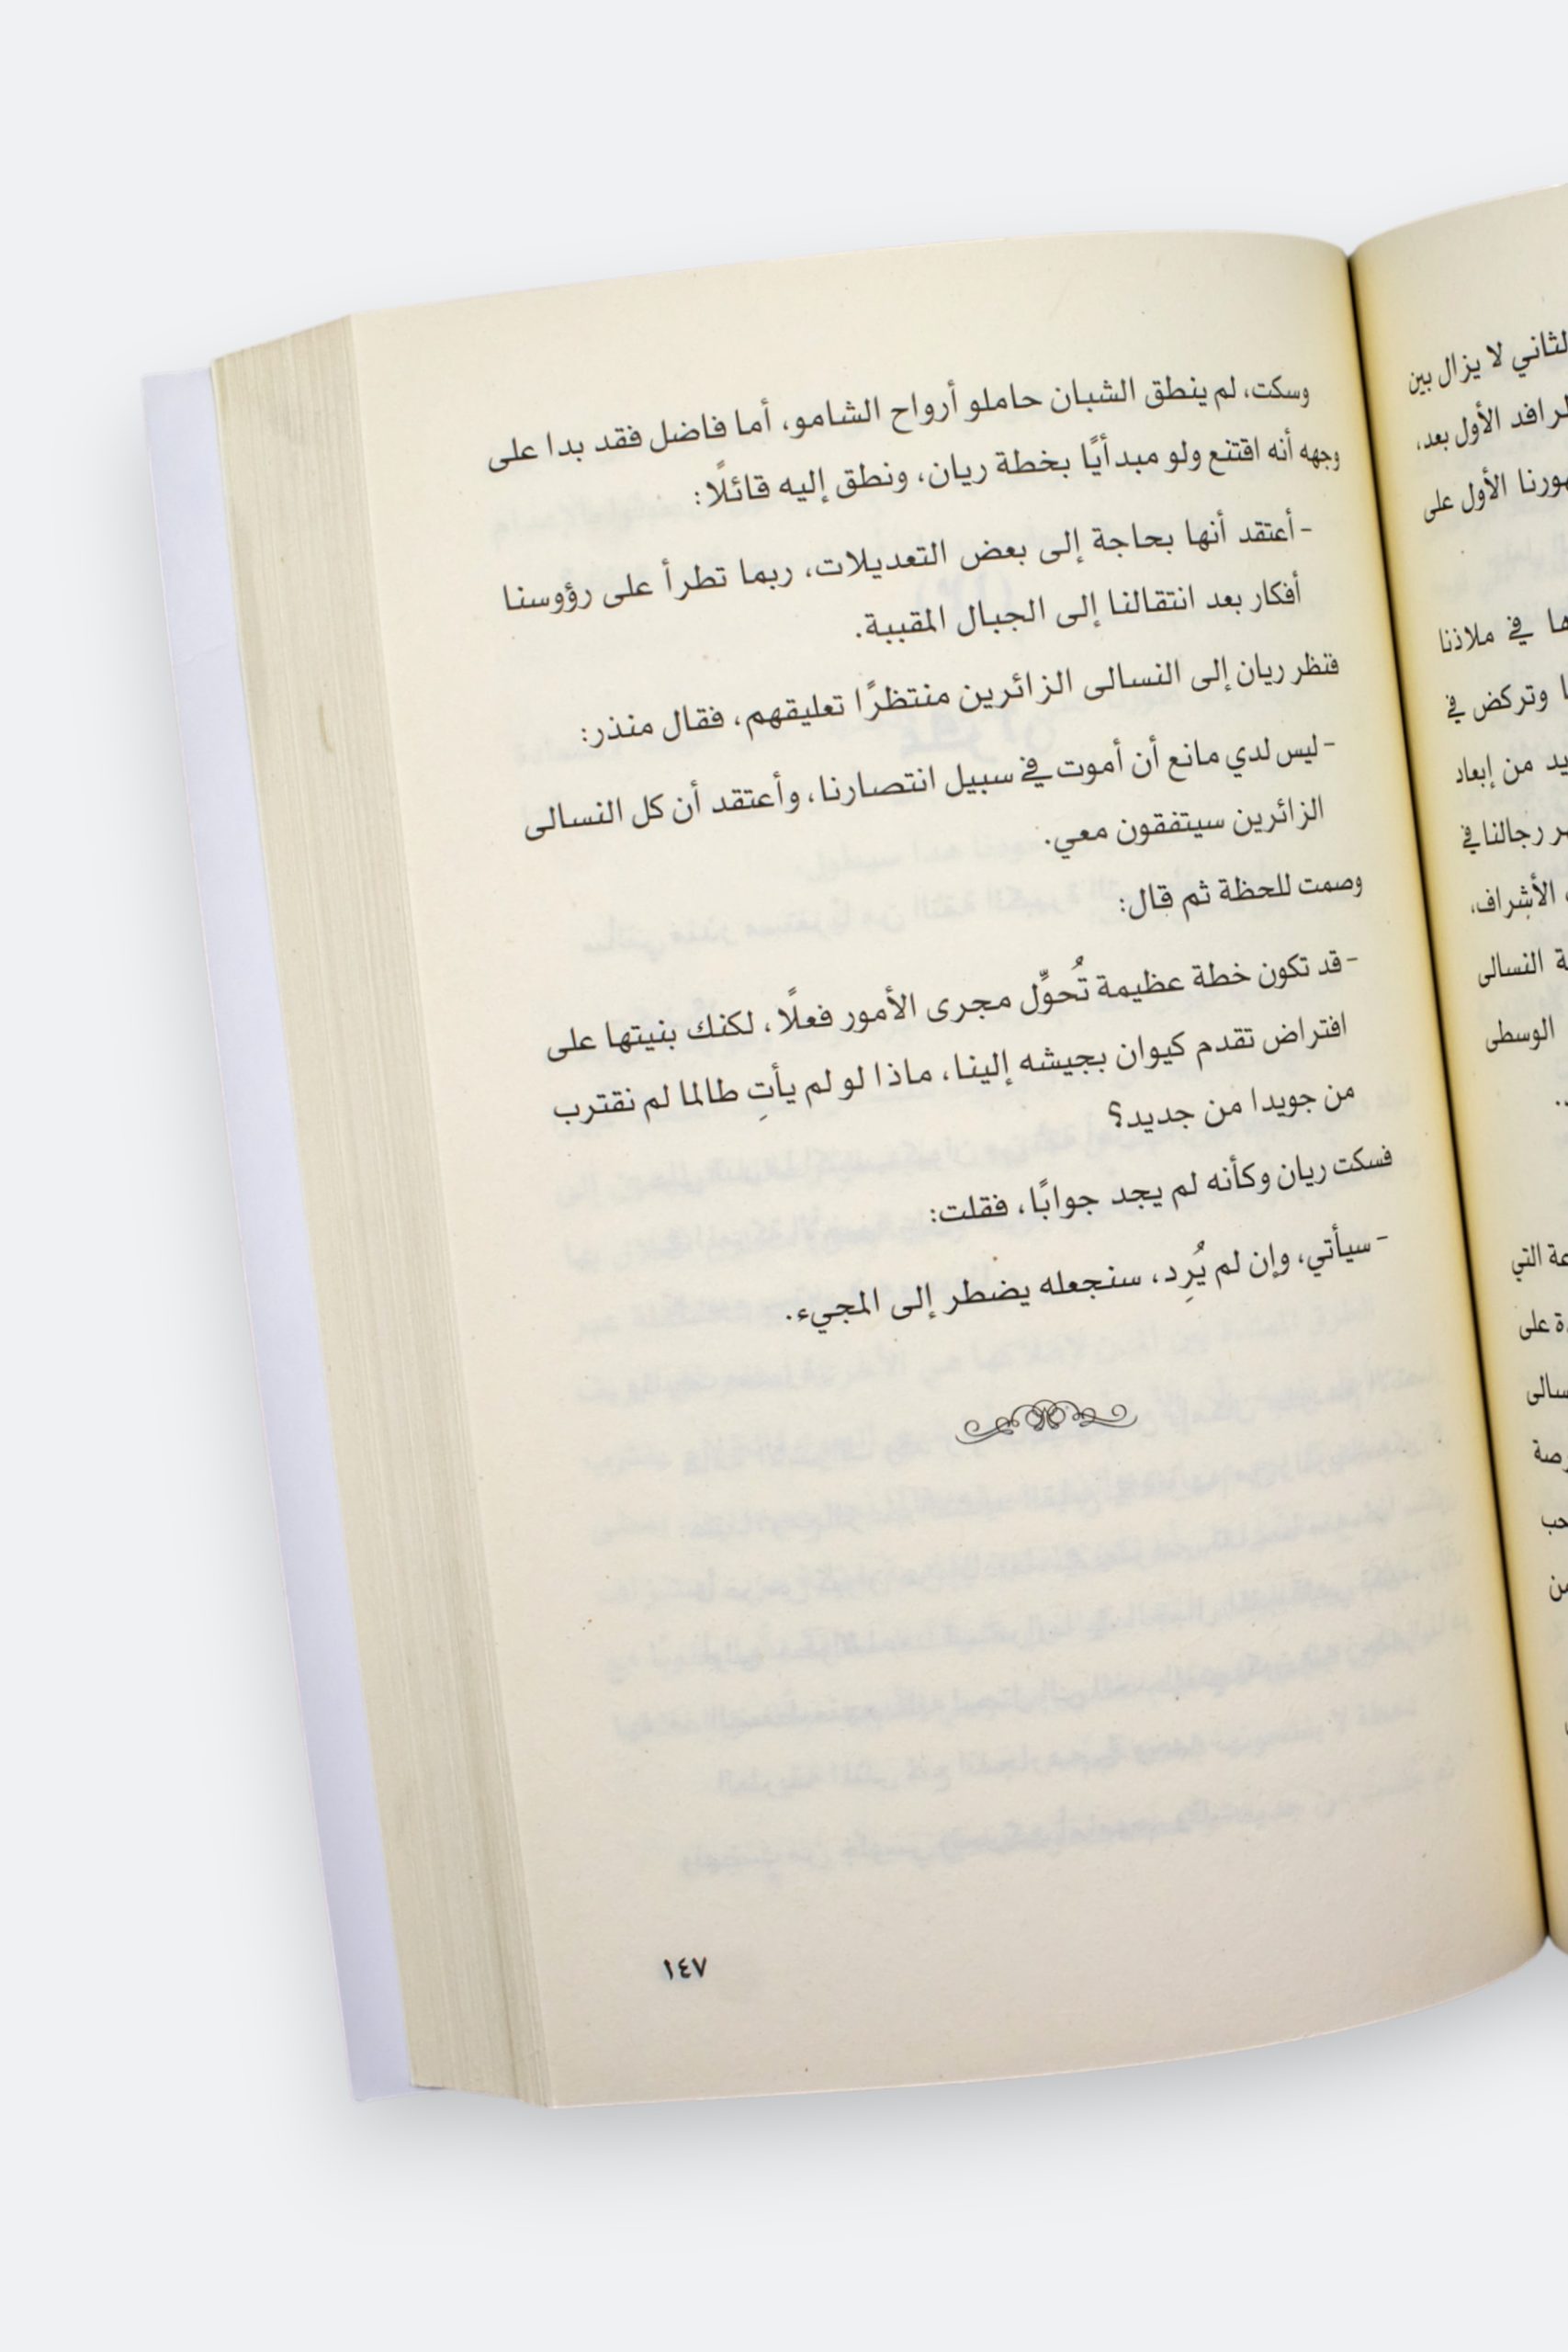 لثاني لا يزال بين
الأول بعد،
الأول على
في ملاذنا
وتركض في
من إبعاد
رجالنا في
الأشراف،
النسالى
الوسطى
التي
على
وسكت، لم ينطق الشبان حاملو أرواح الشامو، أما فاضل فقد بدا على
وجهه أنه اقتنع ولو مبدأيًا بخطة ريان، ونطق إليه قائلًا:
- أعتقد أنها بحاجة إلى بعض التعديلات، ربما تطرأ على رؤوسنا
أفكار بعد انتقالنا إلى الجبال المقببة.
فنظر ريان إلى النسالى الزائرين منتظرًا تعليقهم، فقال منذر:
- ليس لدي مانع أن أموت في سبيل انتصارنا، وأعتقد أن كل النسالى
الزائرين سيتفقون معي.
وصمت للحظة ثم قال:
- قد تكون خطة عظيمة تُحوِّل مجرى الأمور فعلًا، لكنك بنيتها على
افتراض تقدم كيوان بجيشه إلينا، ماذا لو لم يأتِ طالما لم نقترب
من جويدا من جديد؟
فسكت ريان وكأنه لم يجد جوابًا، فقلت:
- سيأتي، وإن لم يُرِد، سنجعله يضطر إلى المجيء.
١٤٧